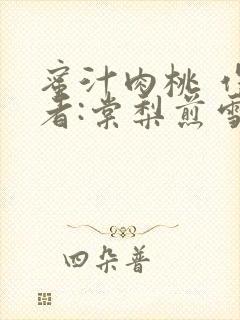 蜜汁肉桃 作
者:棠梨煎雪
四朵普